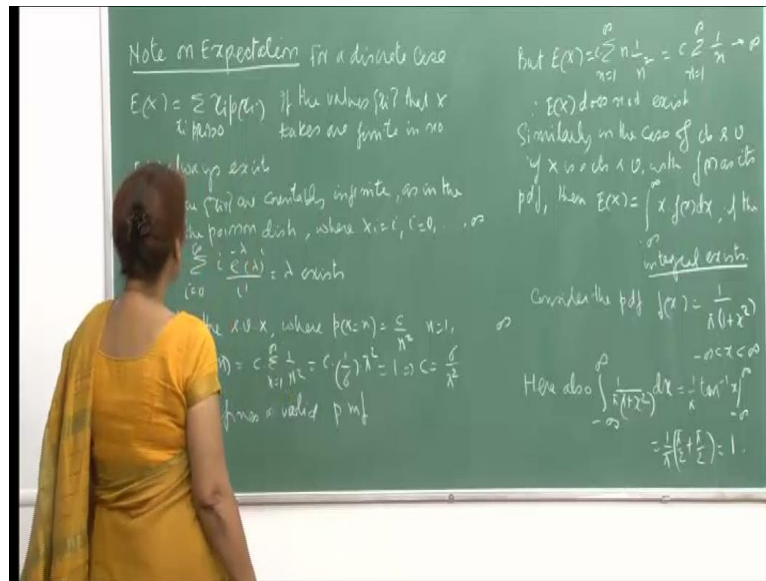 Note on Expectation For a discrete Case
E(X) = Σ xi p(xi) If the values {xi} that X
xi p(xi)>0 takes are finite in no
always exist
{xi} are countably infinite, as in the
the poisson distn, where xi = i, i=0, . . . , ∞
∞ Σ i=0 i e^-λ (λ)^i / i! = λ exists
the r.v. x, where p(x=n) = c/n² n=1, ∞
= c ∞ Σ n=1 1/n² = c. (1/6) π² = 1 => C = 6/π²
defines a valid pmf
But E(X) = c ∞ Σ n=1 n 1/n² = c ∞ Σ n=1 1/n → ∞
∴ E(X) does not exist
Similarly in the case of cts r v
if X is a cts r v, with f(x) as its
pdf, then E(X) = ∫ x f(x) dx, if the
integral exists.
Consider the pdf f(x) = 1/π(1+x²)
-∞<x<∞
Here also ∞ ∫ -∞ 1/π(1+x²) dx = 1/π tan⁻¹ x |∞ -∞
= 1/π (π/2 + π/2) = 1.